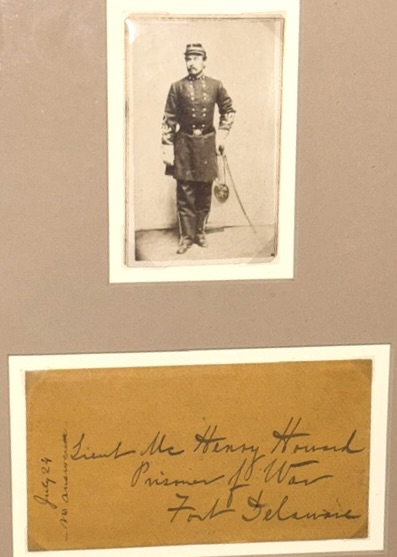 Lieut Mc Henry Howard
Prisoner of War
Fort Delaware
July 24